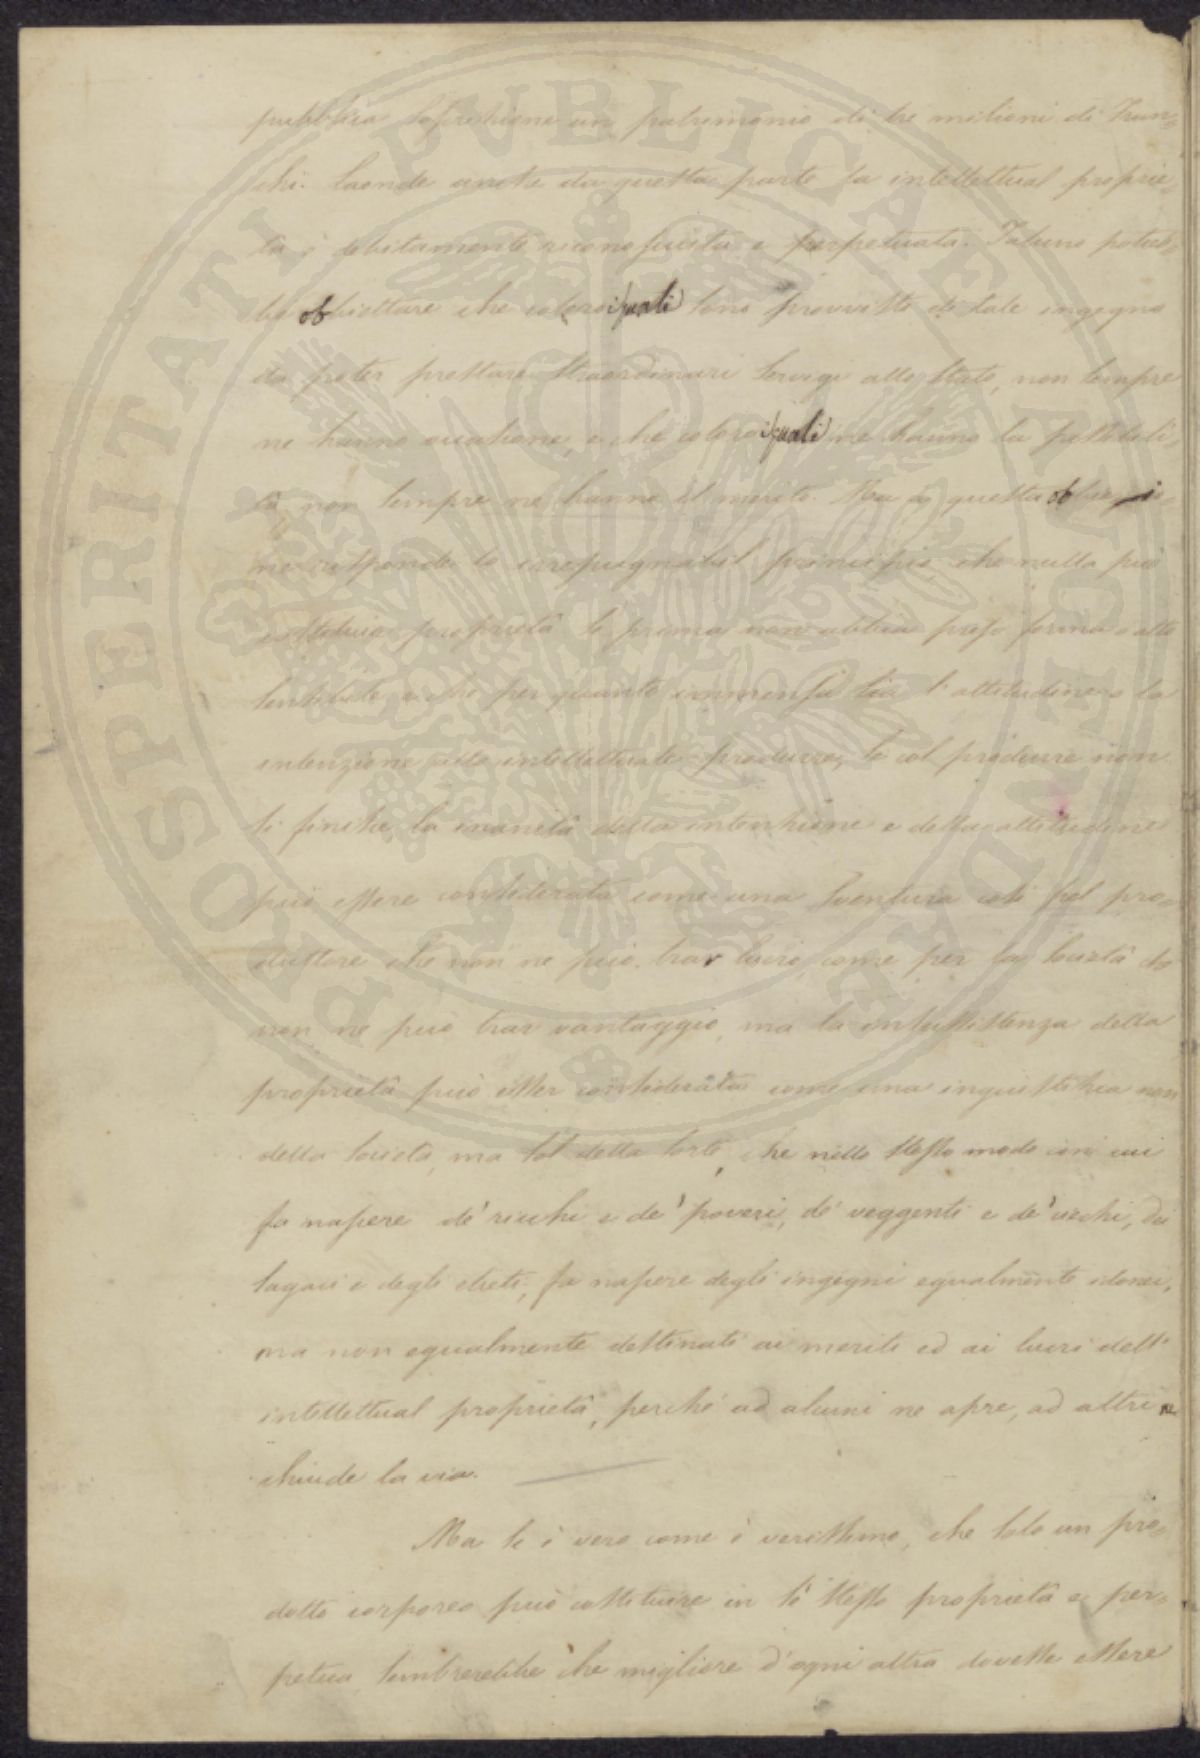 pubblica soscrizione un patrimonio di tre milioni di Fran-
chi. Laonde anche da questa parte la intellettual proprie-
tà è debitamente riconosciuta e perpetuata. Taluno potreb-
be obbiettare che coloro i quali sono provvisti di tale ingegno
da poter prestare straordinari servigi allo Stato, non sempre
ne hanno occasione, e che coloro i quali ne hanno la possibili-
tà non sempre ne hanno il merito. Ma a questa obbiezio-
ne risponde lo irrepugnabil principio che nulla può
costituir proprietà se prima non abbia preso forma e atto
sensibile, e che per quanto immensa sia l'attitudine e la
intenzione allo intellettuale produrre, se col produrre non
si finisce, la inanità della intenzione e della attitudine
può essere considerata come una sventura così pel pro-
duttore che non ne può trar lucro, come per la società che
non ne può trar vantaggio, ma la insussistenza della
proprietà può esser considerata come una ingiustizia non
della società, ma sol della sorte, che nello stesso modo con cui
fa nascere de' ricchi e de' poveri, de' veggenti e de' ciechi, dei
sagaci e degli ebeti, fa nascere degli ingegni egualmente idonei,
ma non egualmente destinati ai meriti ed ai lucri dell'
intellettual proprietà, perché ad alcuni ne apre, ad altri ne
chiude la via.
Ma se è vero come è verissimo, che solo un pro-
dotto corporeo può costituire in sé stesso proprietà e per-
petua, sembrerebbe che migliore d'ogni altra dovesse essere
PROSPERITATI PVBLICAE AVGENDAE